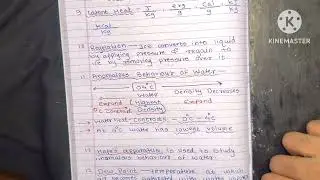 9. Latent Heat = J/Kg, erg/g, Cal/g, K
Kcal/Kg
10. Regelation → Ice converts into liquid
by applying pressure & results to
ice by removing pressure over it.
11. Anomalous Behaviour of Water
4°C
Water Density Decreases
Expand (Highest Expand
Density)
→ Water heat contracts - 0°C - 4°C
→ At 4°C water has lowest volume
12. Hope's apparatus is used to study
anomalous behaviour of water.
13. Dew Point → temperature at which
air becomes saturated with water
KINEMASTER